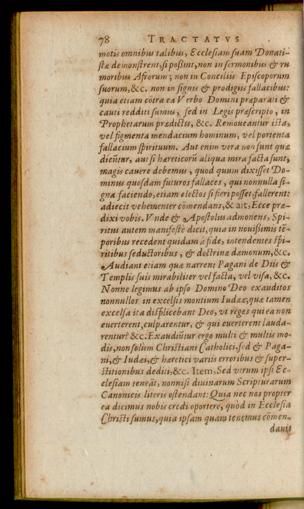 78 TRACTATVS
motis omnibus talibus, Ecclesiam suam Donati-
stæ demonstrent, si possint, non in sermonibus & ru
moribus Afrorum, non in Conciliis Episcoporum
suorum, &c. non in signis & prodigiis fallacibus:
quia etiam cōtra ea Verbo Domini præparati &
cauti redditi sumus, sed in Legis præscripto, in
Prophetarum prædictis, &c. Remoueantur ista,
vel figmenta mendacium hominum, vel portenta
fallacium spirituum. Aut enim vera non sunt quæ
dicūtur, aut si hæreticorū aliqua mira facta sunt,
magis cauere debemus, quod quum dixisset Do-
minus quosdam futuros fallaces, qui nonnulla si-
gna faciendo, etiam electos si fieri posset, fallerent:
adiecit vehementer cōmendans, & ait, Ecce præ-
dixi vobis. Vnde & Apostolus admonens, Spi-
ritus autem manifestè dicit, quia in nouissimis tē-
poribus recedent quidam à fide, intendentes spi-
ritibus seductoribus, & doctrinæ dæmonum, &c.
Audiant etiam quæ narrent Pagani de Diis &
Templis suis mirabiliter vel facta, vel visa, &c.
Nonne legimus ab ipso Domino Deo exauditos
nonnullos in excelsis montium Iudææ, quæ tamen
excelsa ita displicebant Deo, vt reges qui ea non
euerterent, culparentur, & qui euerterent lauda-
rentur? &c. Exaudiūtur ergo multi & multis mo-
dis, non solùm Christiani Catholici, sed & Paga-
ni, & Iudæi, & hæretici variis erroribus & super-
stitionibus dediti, &c. Item, Sed vtrum ipsi Ec-
clesiam teneāt, nonnisi diuinarum Scripturarum
Canonicis literis ostendant: Quia nec nos propter
ea dicimus nobis credi oportere, quòd in Ecclesia
Christi sumus, quia ipsam quam tenemus cōmen-
dauit